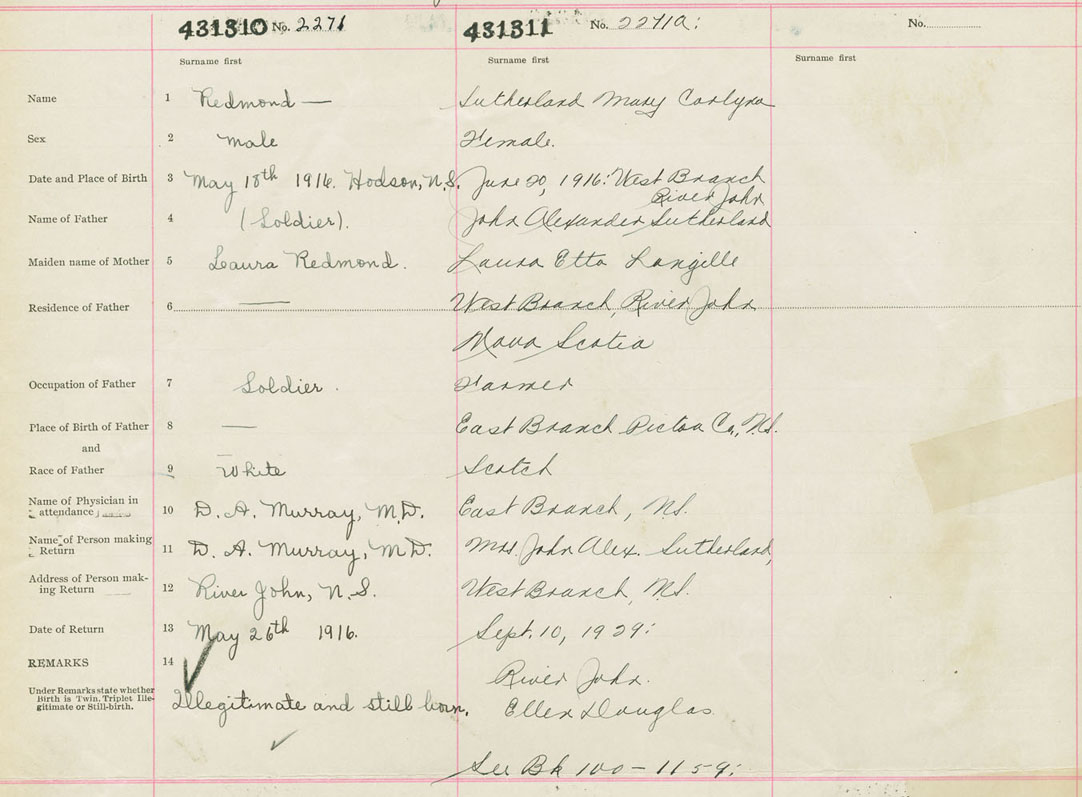 431310 No. 2271 431311 No. 2271a: No.
Surname first Surname first Surname first
Name 1 Redmond — Sutherland Mary Carlyna
Sex 2 male Female.
Date and Place of Birth 3 May 18th 1916. Hodson, N.S. June 20, 1916: West Branch
River John
Name of Father 4 (Soldier). John Alexander Sutherland
Maiden name of Mother 5 Laura Redmond. Laura Etta Langille
Residence of Father 6 — West Branch, River John
Nova Scotia
Occupation of Father 7 Soldier. Farmer
Place of Birth of Father 8 — East Branch Pictou Co., N.S.
and
Race of Father 9 White Scotch
Name of Physician in
attendance 10 D. A. Murray, M.D. East Branch, N.S.
Name of Person making
Return 11 D. A. Murray, M.D. Mrs. John Alex. Sutherland,
Address of Person mak-
ing Return 12 River John, N.S. West Branch, N.S.
Date of Return 13 May 26th 1916. Sept. 10, 1929:
REMARKS 14 River John.
Under Remarks state whether
Birth is Twin, Triplet Ille-
gitimate or Still-birth. Illegitimate and still born. Ellen Douglas
See Bk 100 - 1159: